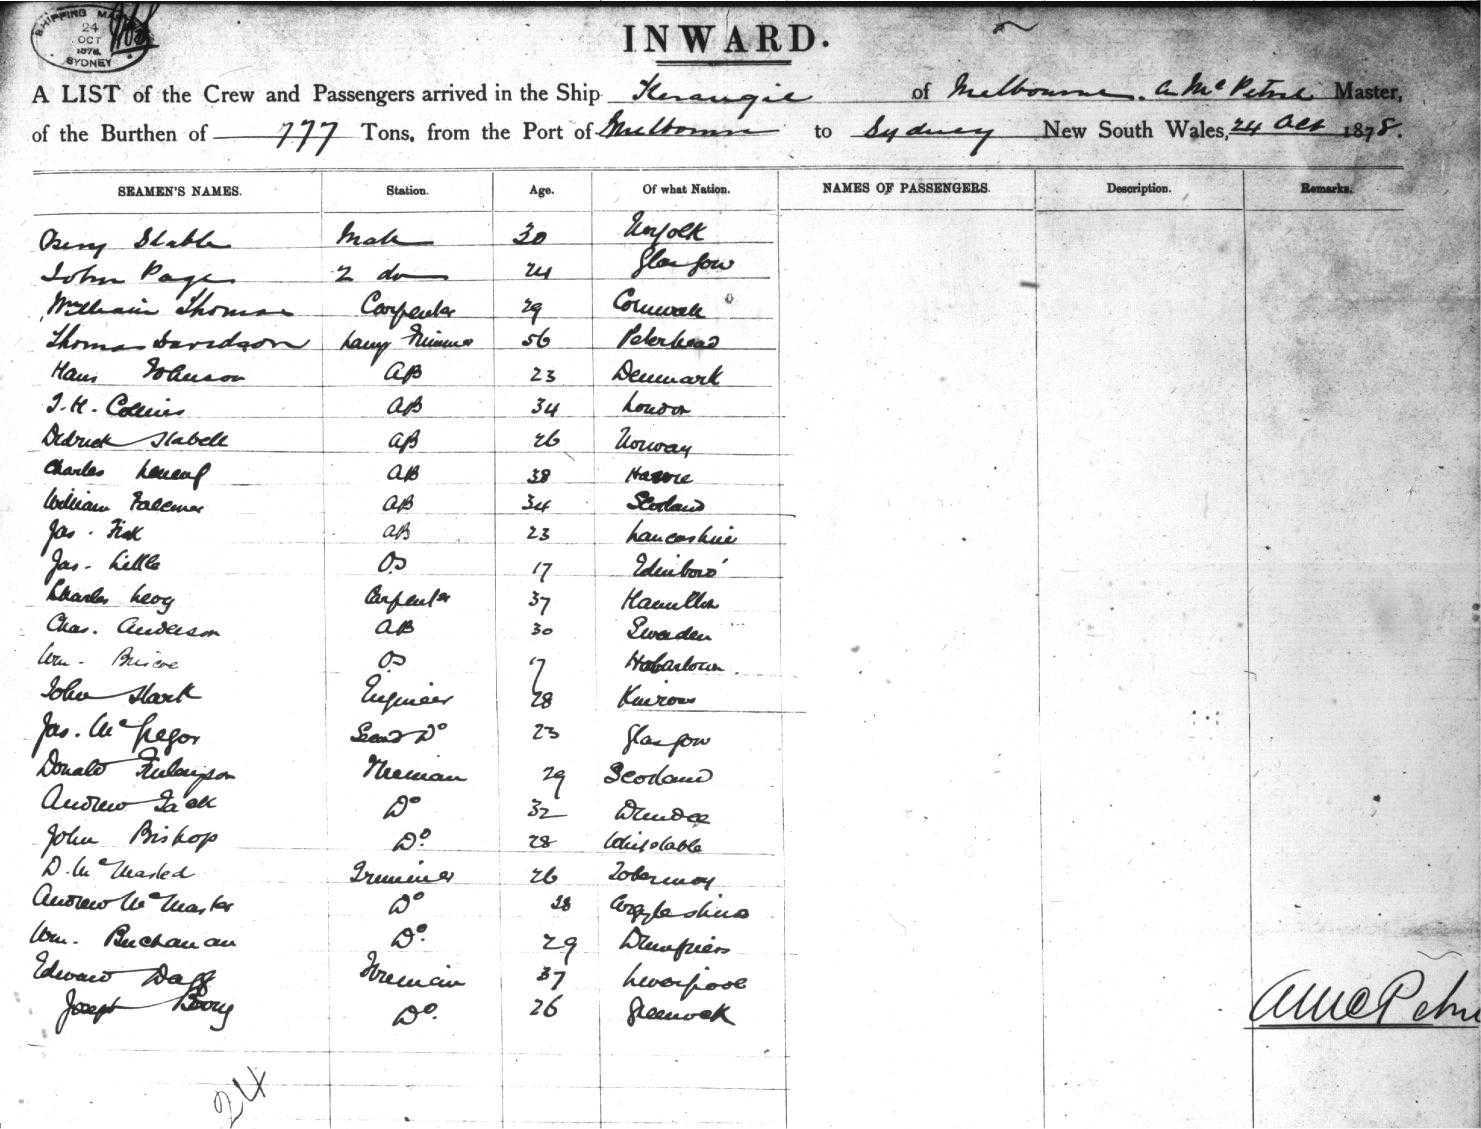 SHIPPING MA
24
OCT
1878
SYDNEY
INWARD.
A LIST of the Crew and Passengers arrived in the Ship Kerangie of Melbourne. A McPetrie Master,
of the Burthen of 777 Tons, from the Port of Melbourne to Sydney New South Wales, 24 Oct 1878.
SEAMEN'S NAMES. Station. Age. Of what Nation. NAMES OF PASSENGERS. Description. Remarks.
Stable Mate 30 Norfolk
John Page 2 do 24 Glasgow
William Thomas Carpenter 29 Cornwall
Thomas Davidson Lamp Trimmer 56 Peterhead
Hans Johnson AB 23 Denmark
T. H. Collins AB 34 London
Didrick Stabell AB 26 Norway
Charles AB 38 Havre
William AB 34 Scotland
Jas. Fisk AB 23 Lancashire
Jas. Little OS 17 Edinboro'
Charles Carpenter 37 Hamilton
Chas. Anderson AB 30 Sweden
Wm. Briscoe OS 17 Hobartown
John Stark Engineer 28 Kinross
Jas. McGregor Second Do 23 Glasgow
Donald Finlayson Fireman 29 Scotland
Andrew Jack Do 32 Dundee
John Bishop Do. 28 Whitstable
D. Mc Trimmer 26 Tobermory
Andrew McMaster Do 38 Argyleshire
Wm. Buchanan Do. 29 Dumfries
Edward Dagg Fireman 37 Liverpool
Joseph Do. 26 Greenock
A McPetrie
24